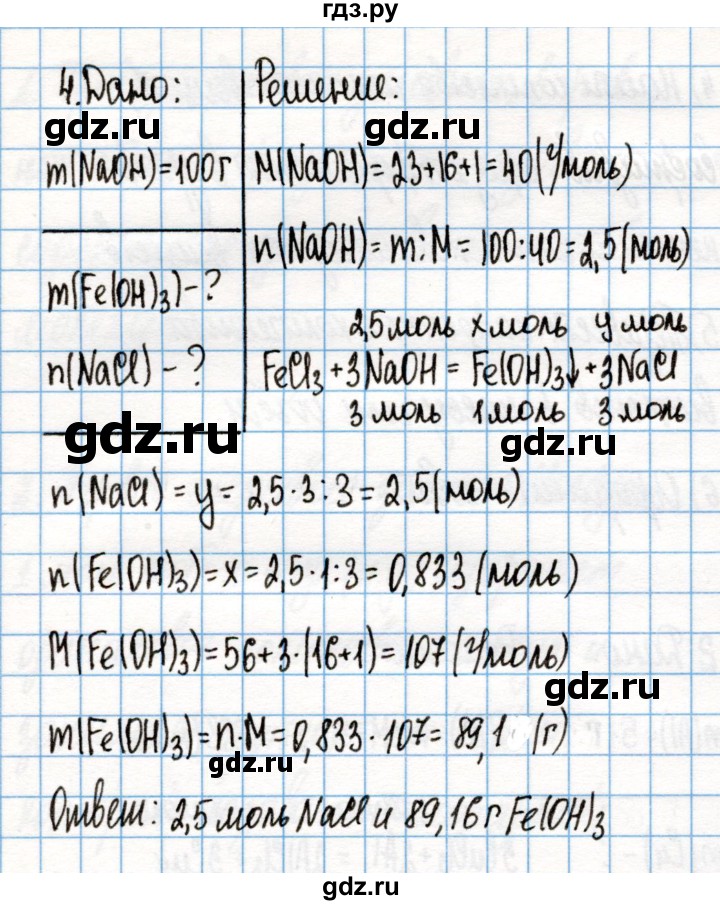 гдз.ру
4. Дано:
gdz.ru
m(NaOH)=100г
m(Fe(OH)₃)-?
n(NaCl) - ?
gdz.ru
Решение:
gdz.ru
M(NaOH)=23+16+1=40(г/моль)
n(NaOH)= m:M=100:40=2,5(моль)
2,5 моль x моль y моль
FeCl₃ +3NaOH = Fe(OH)₃↓+3NaCl
3 моль 1 моль 3 моль
gdz.ru
n(NaCl) = y= 2,5·3:3=2,5(моль)
n(Fe(OH)₃)=x=2,5·1:3=0,833 (моль)
M(Fe(OH)₃)=56+3·(16+1)=107(г/моль)
gdz.ru
m(Fe(OH)₃)=n·M=0,833·107=89,1 (г)
gdz.ru
Ответ: 2,5 моль NaCl и 89,16 г Fe(OH)₃
gdz.ru